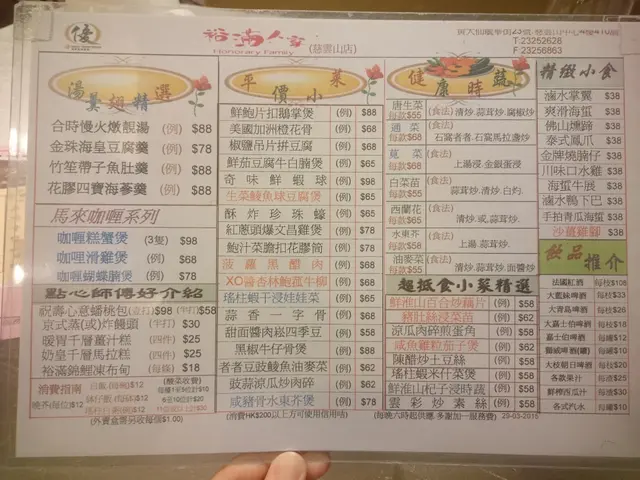 優
裕滿人家
Honorary Family
(慈雲山店)
T:23252628
F:23258863
湯羹翅精選
合時慢火燉靚湯 (例) $88
金珠海皇豆腐羹 (例) $78
竹笙帶子魚肚羹 (例) $88
花膠四寶海參羹 (例) $88
馬來咖喱系列
咖喱糕蟹煲 (3隻) $98
咖喱滑雞煲 (例) $68
咖喱蝴蝶腩煲 (例) $78
點心師傅好介紹
祝壽心意蟠桃包 (壹打)$98 (半打)$58
京式蒸(或)炸饅頭 (半打) $30
暖胃千層薑汁糕 (四件) $25
奶皇千層馬拉糕 (四件) $25
裕滿錦鯉凍布甸 (每條) $18
消費指南
晚芥(每位)$12
(外賣盒需另收每個$1.00)
平價小菜
鮮鮑片扣鵝掌煲 (例) $88
美國加洲橙花骨 (例) $68
椒鹽吊片拼豆腐 (例) $68
鮮茄豆腐牛白腩煲 (例) $65
奇味鮮蝦球 (例) $98
生菜鯪魚球豆腐煲 (例) $65
酥炸珍珠蠔 (例) $65
紅蔥頭爆文昌雞煲 (例) $78
鮑汁菜膽扣花膠筒 (例) $78
菠蘿黑醋肉 (例) $68
XO醬香林鮑孤牛柳 (例) $68
瑤柱蝦干浸娃娃菜 (例) $65
蒜香一字骨 (例) $68
甜面醬肉崧四季豆 (例) $58
黑椒牛仔骨煲 (例) $88
者者豆豉鯪魚油麥菜 (例) $62
豉蒜涼瓜炒肉碎 (例) $62
咸豬骨水東芥煲 (例) $78
(消費HK$200以上方可使用信用咭)
健康時蔬
唐生菜 (食法)
每款$55 清炒.蒜茸炒.腐椒炒
通菜 (食法)
每款$68 石窩者者.石窩馬拉盞炒
莧菜 (食法)
每款$68 上湯浸.金銀蛋浸
白菜苗 (食法)
每款$55 蒜茸炒.清炒.白灼
西蘭花 (食法)
每款$65 清炒.或.蒜茸炒
水東芥 (食法)
每款$58 上湯.蒜茸炒
油麥菜 (食法)
每款$55 清炒.蒜茸炒.面醬炒
超抵食小菜精選
鮮淮山百合炒藕片 (例) $58
豬肚絲浸菜苗 (例) $62
涼瓜肉碎煎蛋角 (例) $58
咸魚雞粒茄子煲 (例) $62
陳醋炒土豆絲 (例) $58
瑤柱蝦米什菜煲 (例) $58
鮮淮山杞子浸時蔬 (例) $58
雲彩炒素絲 (例) $58
(每晚六時起供應 多謝加一服務費) 29-03-2015
精緻小食
滷水掌翼 $38
爽滑海蜇 $38
佛山燻蹄 $38
泰式鳳爪 $38
金牌燒腩仔 $38
川味口水雞 $38
海蜇牛展 $38
滷水鴨下巴 $38
手拍青瓜海蜇 $38
沙薑雞腳 $38
飲品推介
法國紅酒 每枝$108
大藍妹啤酒 每枝$33
大青島啤酒 每枝$26
大嘉士伯啤酒 每枝$18
嘉士伯啤酒 每罐$12
獅威啤酒(罐) 每罐$10
大枝朝日啤酒 每枝$28
各款果汁 每杯$25
鮮榨西瓜汁 每杯$30
各式汽水 每罐$10